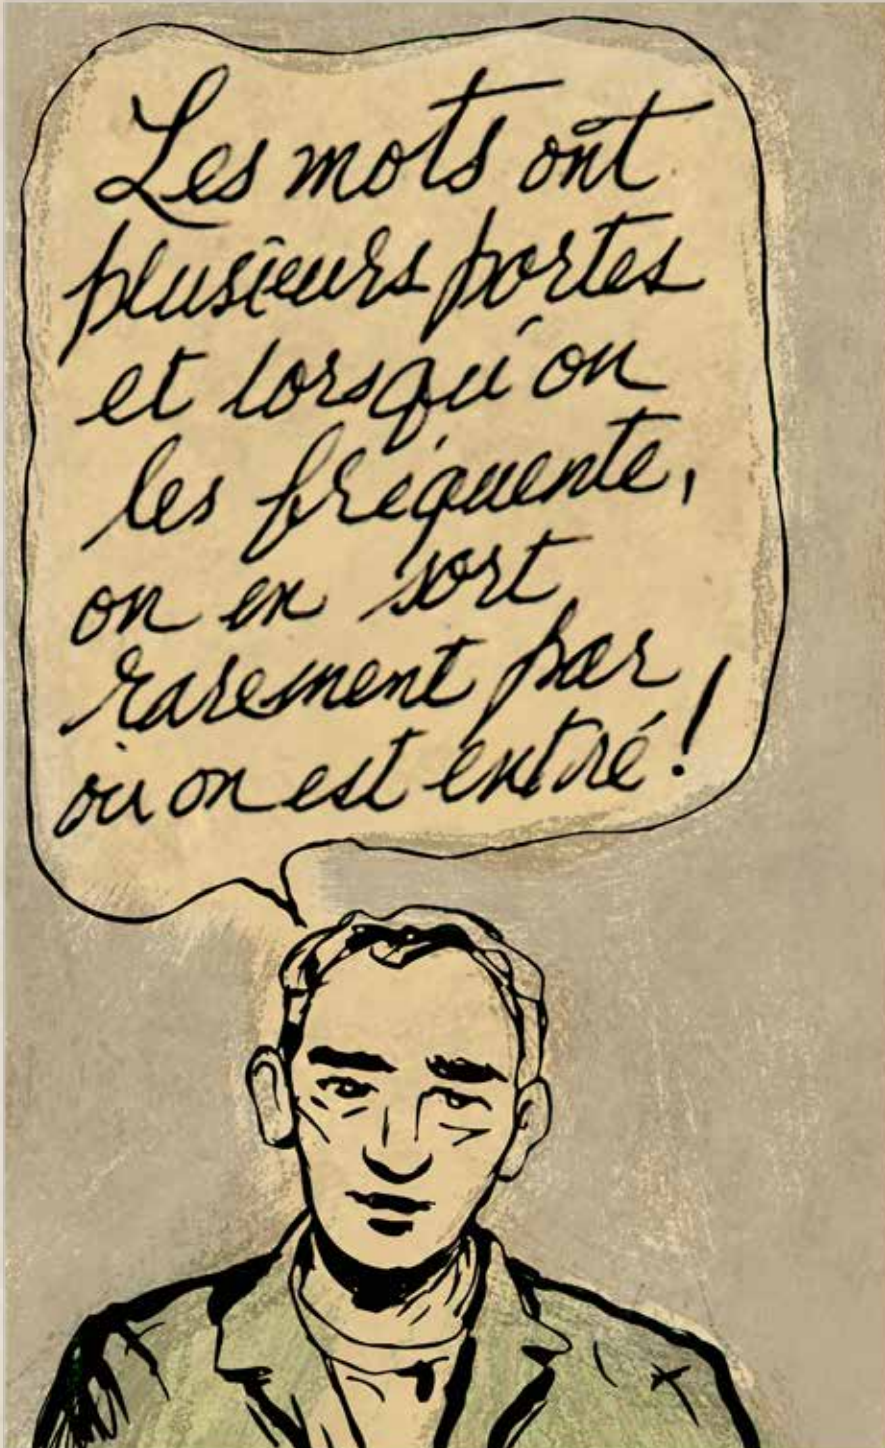 Les mots ont
plusieurs portes
et lorsqu'on
les fréquente,
on en sort
rarement par
où on est entré!